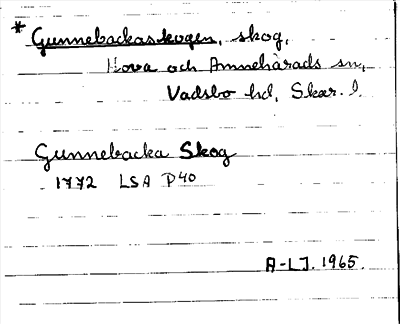 * Gunnebackaskogen, skog,
Hova och Amnehärads sn,
Vadsbo hd, Skar. l.
Gunnebacka Skog
1772 LSA P40
A-LJ. 1965.